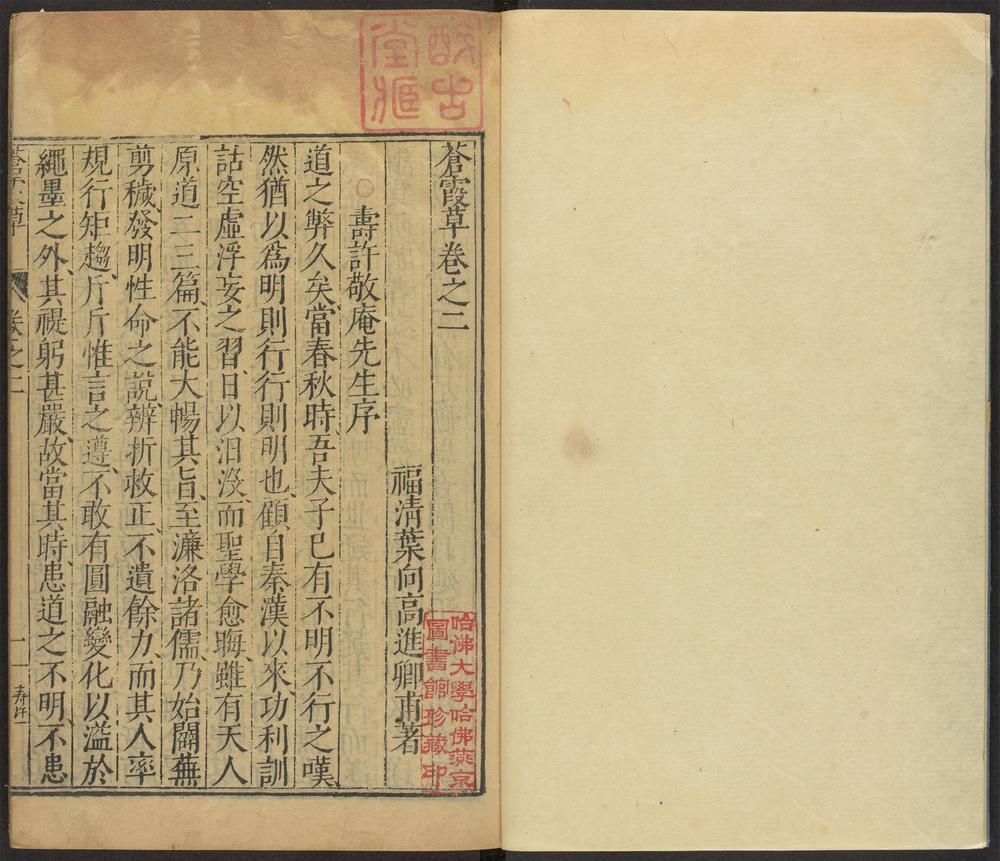 蒼霞草卷之二
福清葉向高進卿甫著
壽許敬庵先生序
道之弊久矣當春秋時吾夫子已有不明不行之嘆
然猶以爲明則行行則明也顧自秦漢以來功利訓
詁空虛浮妄之習日以汨沒而聖學愈晦雖有天人
原道二三篇不能大暢其旨至濂洛諸儒乃始闢蕪
剪穢發明性命之說辨折救正不遺餘力而其人率
規行矩趨斤斤惟言之遵不敢有圓融變化以溢於
繩墨之外其禔躬甚嚴故當其時患道之不明不患
蒼霞草
卷之二
一
壽許
哈佛大學哈佛燕京
圖書館珍藏印